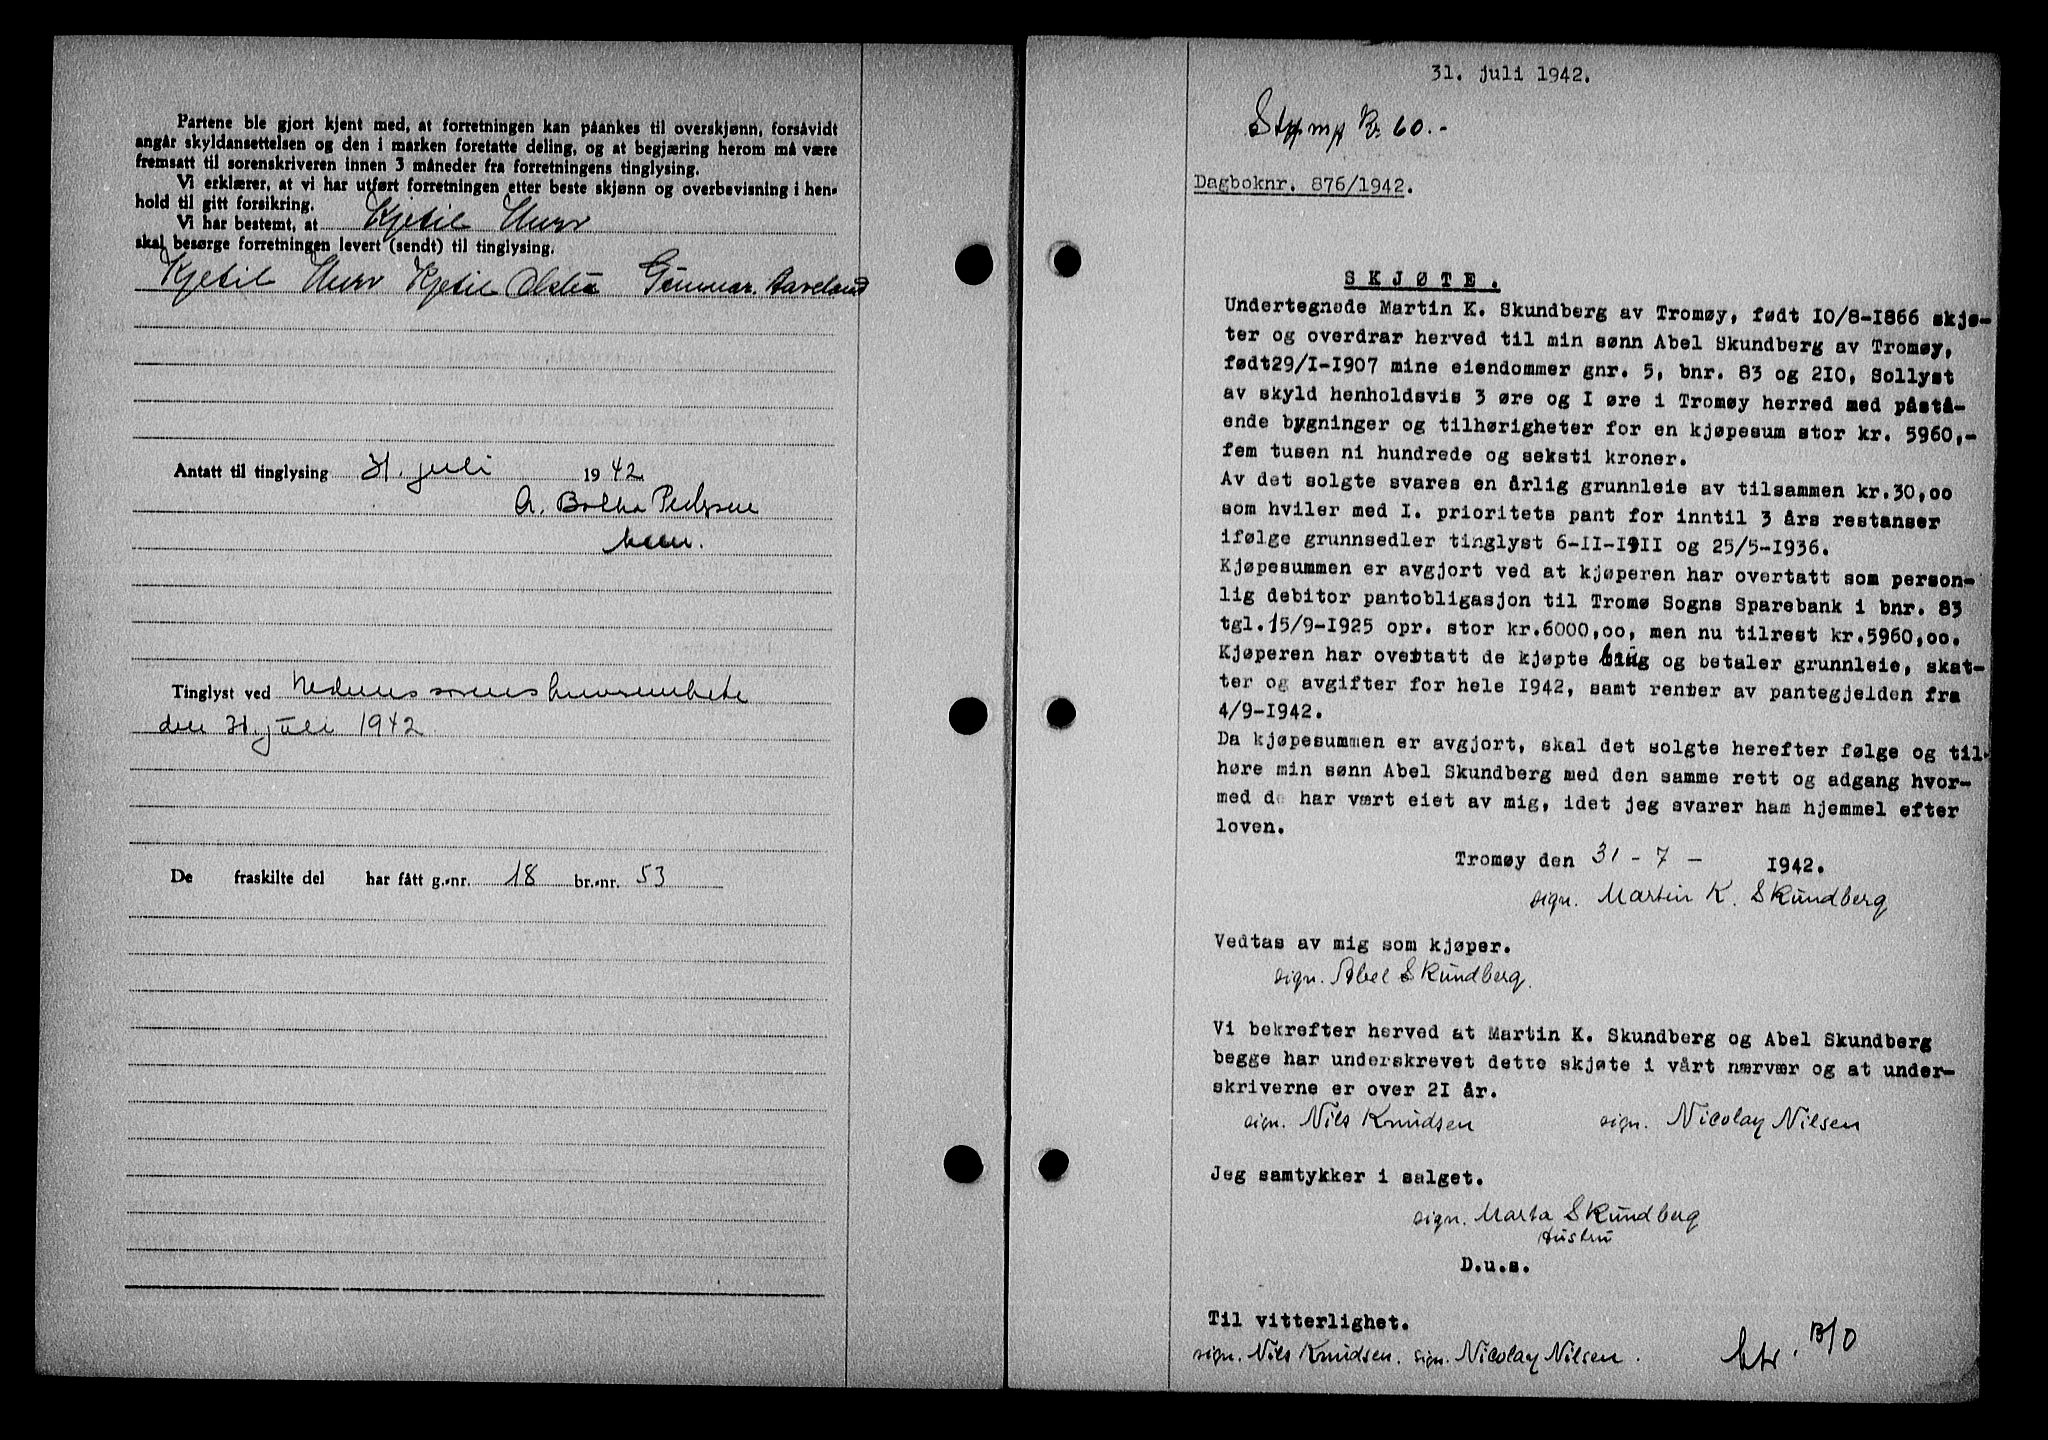 Partene ble gjort kjent med, at forretningen kan påankes til overskjønn, forsåvidt
angår skyldansettelsen og den i marken foretatte deling, og at begjæring herom må være
fremsatt til sorenskriveren innen 3 måneder fra forretningens tinglysing.
Vi erklærer, at vi har utført forretningen etter beste skjønn og overbevisning i hen-
hold til gitt forsikring.
Vi har bestemt, at Kjetil
skal besørge forretningen levert (sendt) til tinglysing.
Kjetil Kjetil Gunnar Aaveland
Antatt til tinglysing 31. juli 1942
A. Bolka Pedersen
Tinglyst ved Nedenes sorenskriverembete
den 31. juli 1942.
De fraskilte del har fått g.-nr. 18 br.-nr. 53
31. juli 1942.
Kr 60.-
Dagboknr. 876/1942.
SKJØTE.
Undertegnede Martin K. Skundberg av Tromøy, født 10/8-1866 skjø-
ter og overdrar herved til min sønn Abel Skundberg av Tromøy,
født29/I-1907 mine eiendommer gnr. 5, bnr. 83 og 2I0, Sollyst
av skyld henholdsvis 3 øre og I øre i Tromøy herred med påstå-
ende bygninger og tilhørigheter for en kjøpesum stor kr. 5960,-
fem tusen ni hundrede og seksti kroner.
Av det solgte svares en årlig grunnleie av tilsammen kr.30,oo
som hviler med I. prioritets pant for inntil 3 års restanser
ifølge grunnsedler tinglyst 6-II-19II og 25/5-1936.
Kjøpesummen er avgjort ved at kjøperen har overtatt som person-
lig debitor pantobligasjon til Tromø Sogns Sparebank i bnr. 83
tgl.15/9-1925 opr. stor kr.6000,oo, men nu tilrest kr.5960,oo.
Kjøperen har overtatt de kjøpte brug og betaler grunnleie, skat-
ter og avgifter for hele 1942, samt renter av pantegjelden fra
4/9-1942.
Da kjøpesummen er avgjort, skal det solgte herefter følge og til-
høre min sønn Abel Skundberg med den samme rett og adgang hvor-
med de har vært eiet av mig, idet jeg svarer ham hjemmel efter
loven.
Tromøy den 31 - 7 - 1942.
sign. Martin K. Skundberg
Vedtas av mig som kjøper.
sign. Abel Skundberg.
Vi bekrefter herved at Martin K. Skundberg og Abel Skundberg
begge har underskrevet dette skjøte i vårt nærvær og at under-
skriverne er over 2I år.
sign. Nils Knudsen sign. Nicolay Nilsen
Jeg samtykker i salget.
sign. Marta Skundberg
Hustru
D.u.s.
Til vitterlighet.
sign. Nils Knudsen. sign. Nicolay Nilsen.